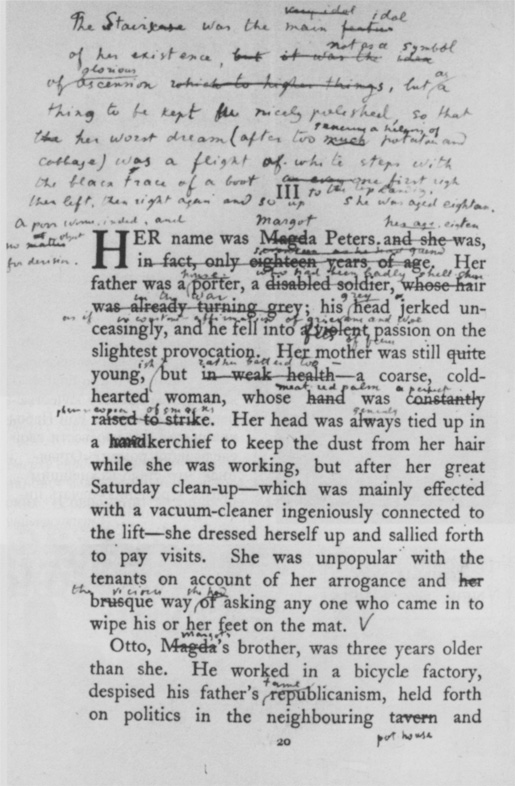 The Staircase was the main idol
of her existence, but it was the not as a symbol
of glorious ascension which to higher things, but as a
thing to be kept nicely polished, so that
her worst dream (after too much potatoes and
cabbage) was a flight of white steps with
the black trace of a boot first right
then left, then right again and so up to the top landing.
III
A poor woman indeed, and she was aged eighteen.
no object
for derision.
Margot
HER name was Magda Peters. and she was,
in fact, only eighteen years of age. Her
house who had been badly shell
father was a porter, a disabled soldier, whose hair
in the war grey
was already turning grey; his head jerked un-
as if in constant affirmation of grievance and woe
ceasingly, and he fell into a violent passion on the
slightest provocation. Her mother was still quite
ish rather battered too
young, but in weak health—a coarse, cold-
red palm a perfect
hearted woman, whose hand was constantly
of smacks generally
raised to strike. Her head was always tied up in
a handkerchief to keep the dust from her hair
while she was working, but after her great
Saturday clean-up—which was mainly effected
with a vacuum-cleaner ingeniously connected to
the lift—she dressed herself up and sallied forth
to pay visits. She was unpopular with the
tenants on account of her arrogance and her
the vicious she had
brusque way of asking any one who came in to
wipe his or her feet on the mat.
Margot's
Otto, Magda's brother, was three years older
than she. He worked in a bicycle factory,
tame
despised his father's republicanism, held forth
on politics in the neighbouring tavern and
pot house
20